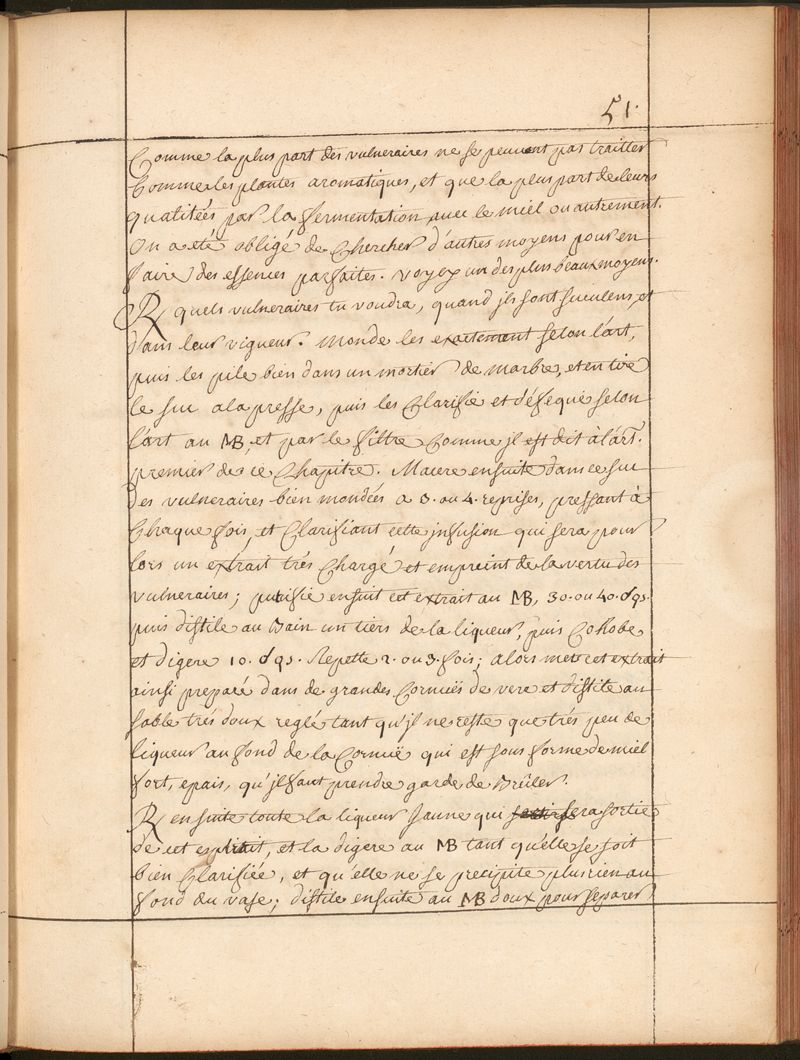 51.
Comme la plus part des vulneraires ne se peuvent pas traitter
Comme les plantes aromatiques, et que la plus part de leurs
qualitées par la fermentation avec le miel ou autrement.
On a eté obligé de Chercher d'autres moyens pour en
faire des essences parfaites. voyez un des plus beaux moyens.
R quels vulneraires tu voudra, quand jls sont suculens, et
dans leur vigueur. Monde les exactement selon l'art,
puis les pile bien dans un mortier de marbre, et en tire
le suc a la presse, puis les Clarifie et déféque selon
l'art au MB, et par le filtre Comme jl est dit à l'art.
premier de ce Chapitre. Macere ensuite dans ce suc
des vulneraires bien mondées a 3. ou 4. reprises, pressant à
Chaque fois, et Clarifiant cette jnfusion qui sera pour
lors un extrait trés Chargé et empreint de la vertu des
vulneraires; putrifie ensuit cet extrait au MB, 30. ou 40. dqs.
puis distile au Bain un tiers de la liqueur, puis Cohobe
et digere 10. dqs. Repette 2. ou 3. fois; alors mets cet extrait
ainsi preparé dans de grandes Cornuës de vere et distile au
sable trés doux reglé tant qu'jl ne reste que trés peu de
liqueur au fond de la Cornuë qui est sous forme de miel
fort, epais, qu'jl faut prendre garde de Brûler.
R ensuite toute la liqueur Jaune qui sera sortie
de cet extrait, et la digere au MB tant qu'elle se soit
bien Clarifiée, et qu'elle ne se precipite plus rien au
fond du vase; distile ensuite au MB doux pour separer